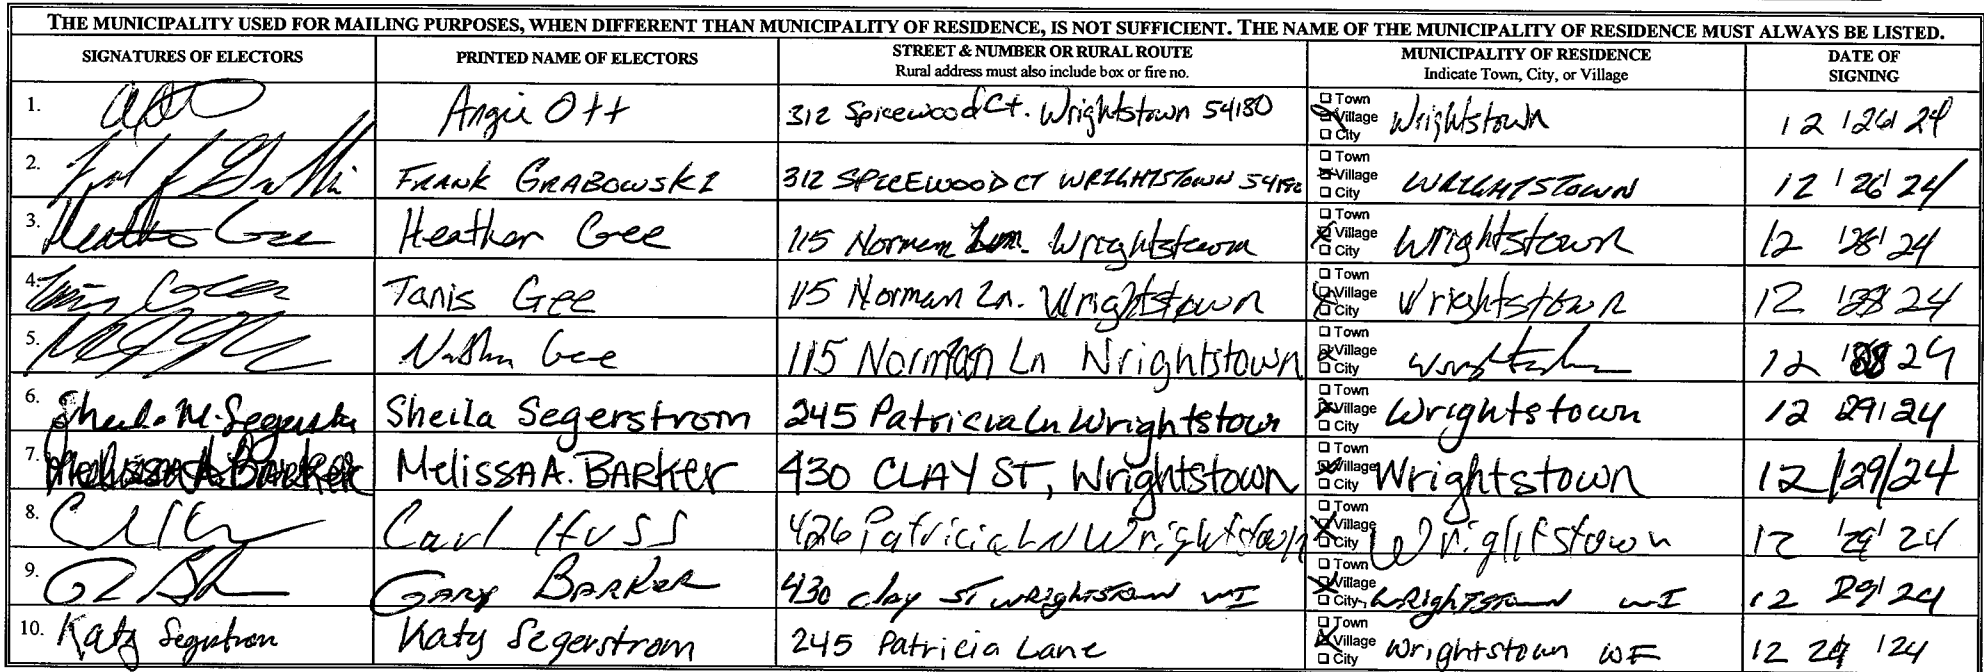 THE MUNICIPALITY USED FOR MAILING PURPOSES, WHEN DIFFERENT THAN MUNICIPALITY OF RESIDENCE, IS NOT SUFFICIENT. THE NAME OF THE MUNICIPALITY OF RESIDENCE MUST ALWAYS BE LISTED.
SIGNATURES OF ELECTORS PRINTED NAME OF ELECTORS STREET & NUMBER OR RURAL ROUTE MUNICIPALITY OF RESIDENCE DATE OF SIGNING
Rural address must also include box or fire no. Indicate Town, City, or Village
1. Angie Ott 312 Spicewood Ct. Wrightstown 54180 Town Village City Wrightstown 12 26 24
2. FRANK GRABOWSKI 312 SPICEWOOD CT WRIGHTSTOWN 54180 Town Village City WRIGHTSTOWN 12 26 24
3. Heather Gee Heather Gee 115 Norman Wrightstown Town Village City Wrightstown 12 28 24
4. Tanis Gee 115 Norman Ln. Wrightstown Town Village City Wrightstown 12 28 24
5. Nathan Gee 115 Norman Ln Wrightstown Town Village City 12 28 24
6. Sheila M. Segerstrom Sheila Segerstrom 245 Patricia Ln Wrightstown Town Village City Wrightstown 12 29 24
7. Melissa A. BARKER MelissA A. BARKER 430 CLAY ST, Wrightstown Town Village City Wrightstown 12/29/24
8. Carl Huss 426 Patricia LN Wrightstown Town Village City Wrightstown 12 29 24
9. GARY BARKER 430 clay ST WRIghtstown WI Town Village City WRighTSTown WI 12 29 24
10. Katy Segerstrom Katy Segerstrom 245 Patricia Lane Town Village City Wrightstown WI 12 29 24